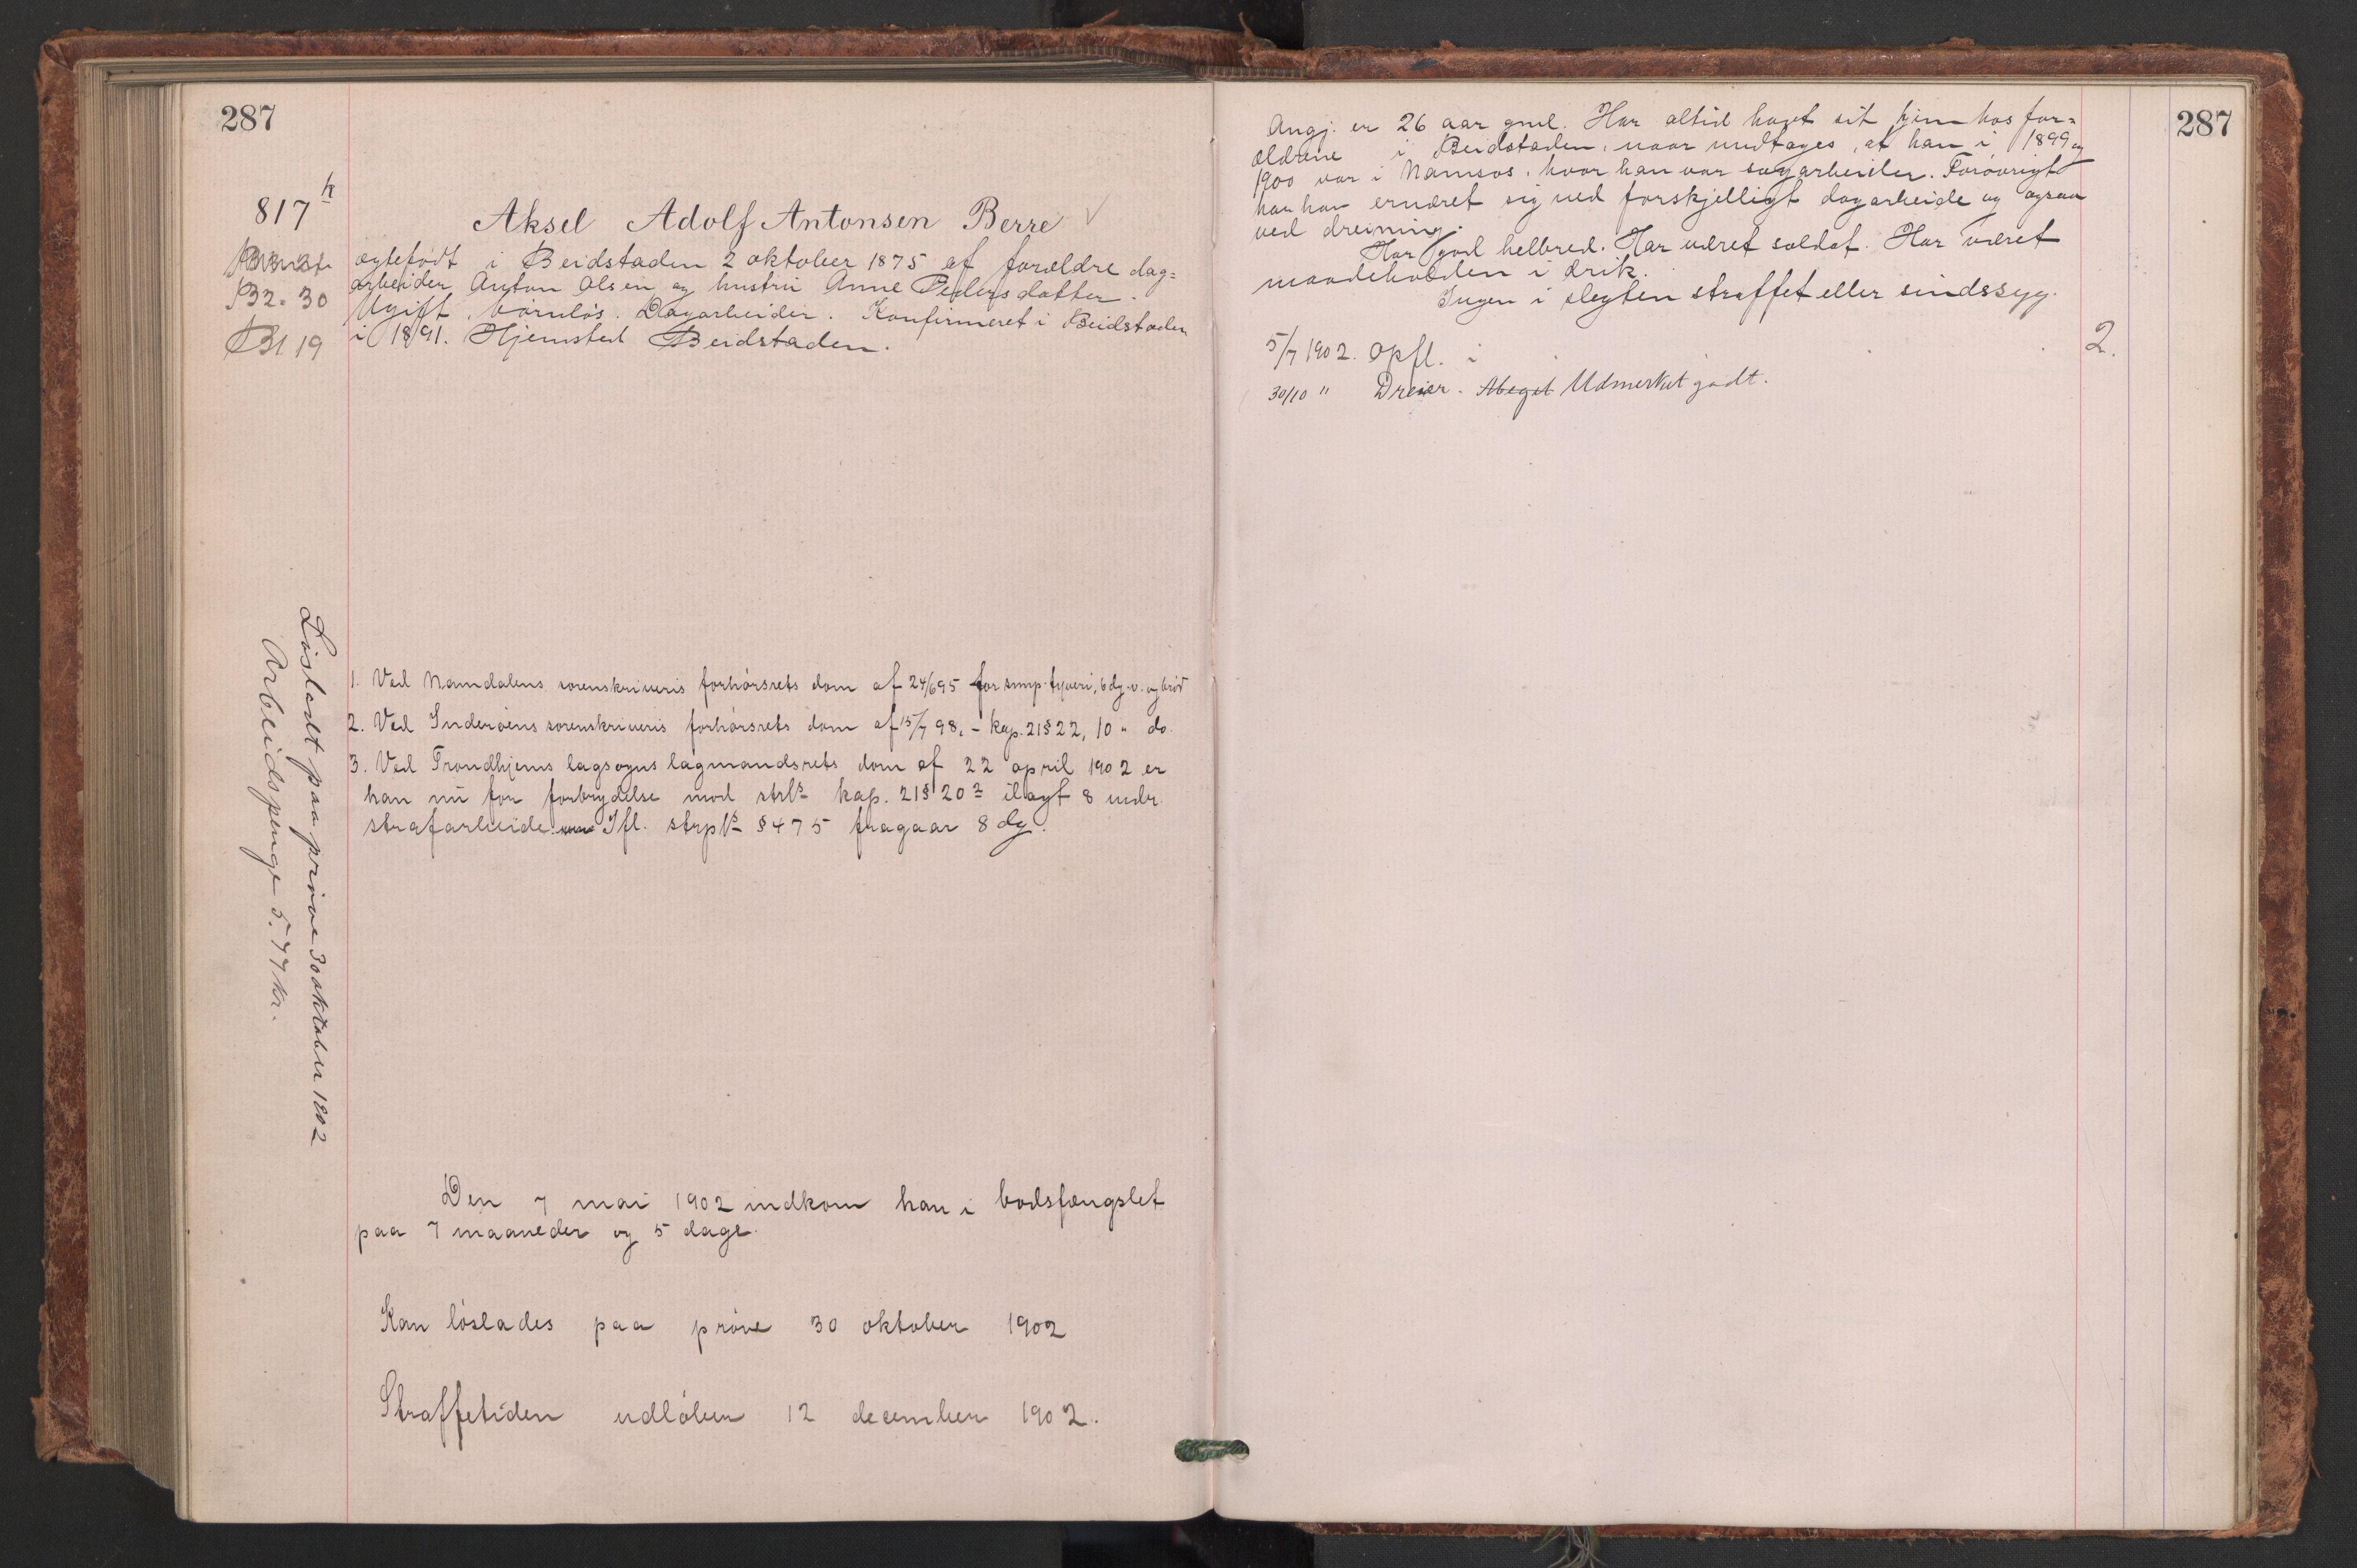 287
817 h
B2. 30
B1 19
Aksel Adolf Antonsen Berre
ægtefødt i Beidstaden 2 oktober 1875 af forældre dag=
arbeider Anton Olsen og hustru Anne Pedersdatter.
Ugift, børnløs. Dagarbeider. Konfirmeret i Beidstaden
i 1891. Hjemsted Beidstaden.
1. Ved Namdalens sorenskriveris forhørsrets dom af 24/6 95 for simp. tyveri, 6 dg. v. og brød
2. Ved Inderøens sorenskriveris forhørsrets dom af 15/7 98, - kap. 21 § 22, 10 " do.
3. Ved Trondhjems lagsogns lagmandsrets dom af 22 april 1902 er
han nu for forbrydelse mod strls kap. 21 § 20 2 ilagt 8 mdr.
strafarbeide. Ifl. strpls § 475 fragaar 8 dg.
Løsladt paa prøve 30 oktober 1902
Arbeidspenge 5.77 kr.
Den 7 mai 1902 indkom han i bodsfængslet
paa 7 maaneder og 5 dage.
Kan løslades paa prøve 30 oktober 1902
Straffetiden udløber 12 december 1902.
287
Angj. er 26 aar gml. Har altid havt sit hjem hos for=
ældrene i Beidstaden, naar undtages, at han i 1899 og
1900 var i Namsos, hvor han var sagarbeider. Forøvrigt
han har ernæret sig ved forskjelligt dagarbeide og ogsaa
ved dreining.
Har god helbred. Har været soldat. Har været
maadeholden i drik.
Ingen i slegten straffet eller sindssyg.
5/7 1902. Opfl. i 2.
30/10 " Dreier. Meget Udmerket godt.